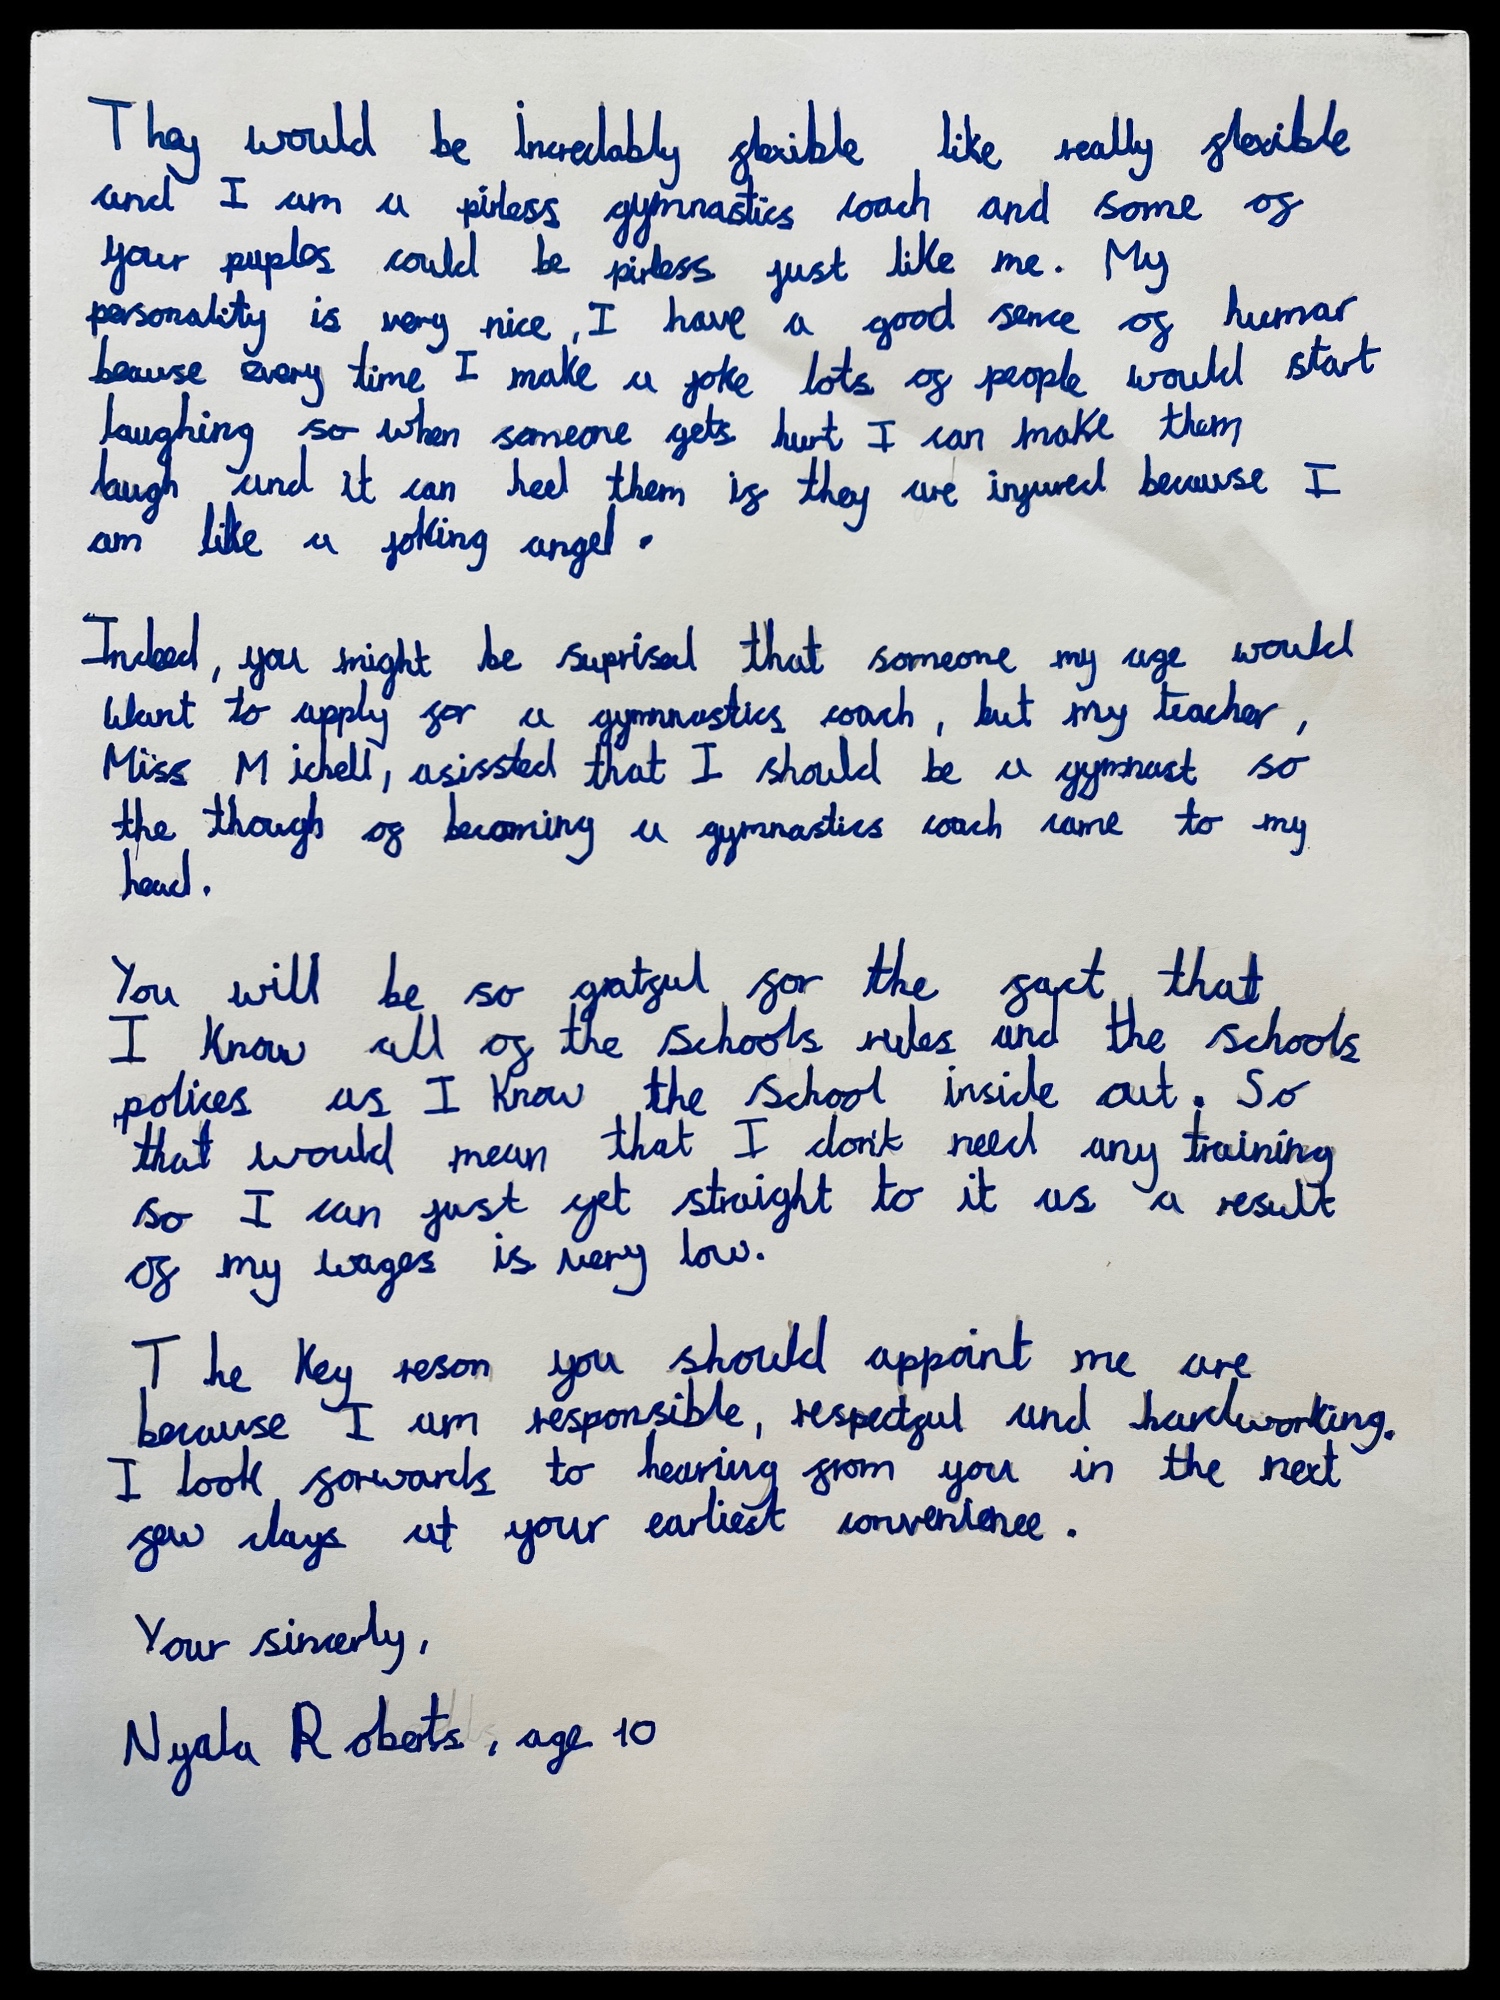 They would be Incredably flexible like really flexible
and I am a pirless gymnastics coach and some of
your puples could be pirless just like me. My
personality is very nice, I have a good sence of humar
beause every time I make a joke lots of people would start
laughing so when someone gets hurt I can make them
laugh and it can heel them if they are injured because I
am like a joking angel.
Indeed, you might be suprised that someone my age would
Want to apply for a gymnnastics coach, but my teacher,
Miss Michell, asissted that I should be a gymnast so
the though of becoming a gymnastics coach came to my
head.
You will be so gratful for the fact that
I Know all of the schools rules and the schools
polices as I Know the school inside out. So
that would mean that I don't need any training
so I can just get straight to it as a result
of my wages is very low.
The Key reson you should appoint me are
because I am responsible, respectful and hardworking.
I look forwards to hearing from you in the next
few days at your earliest convenience.
Your sincerly,
Nyala Roberts, age 10